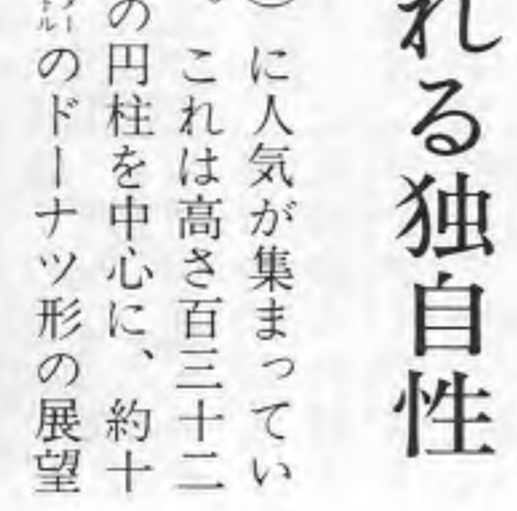 れる独自性
に人気が集まってい
。これは高さ百三十二
の円柱を中心に、約十
メートルのドーナツ形の展望